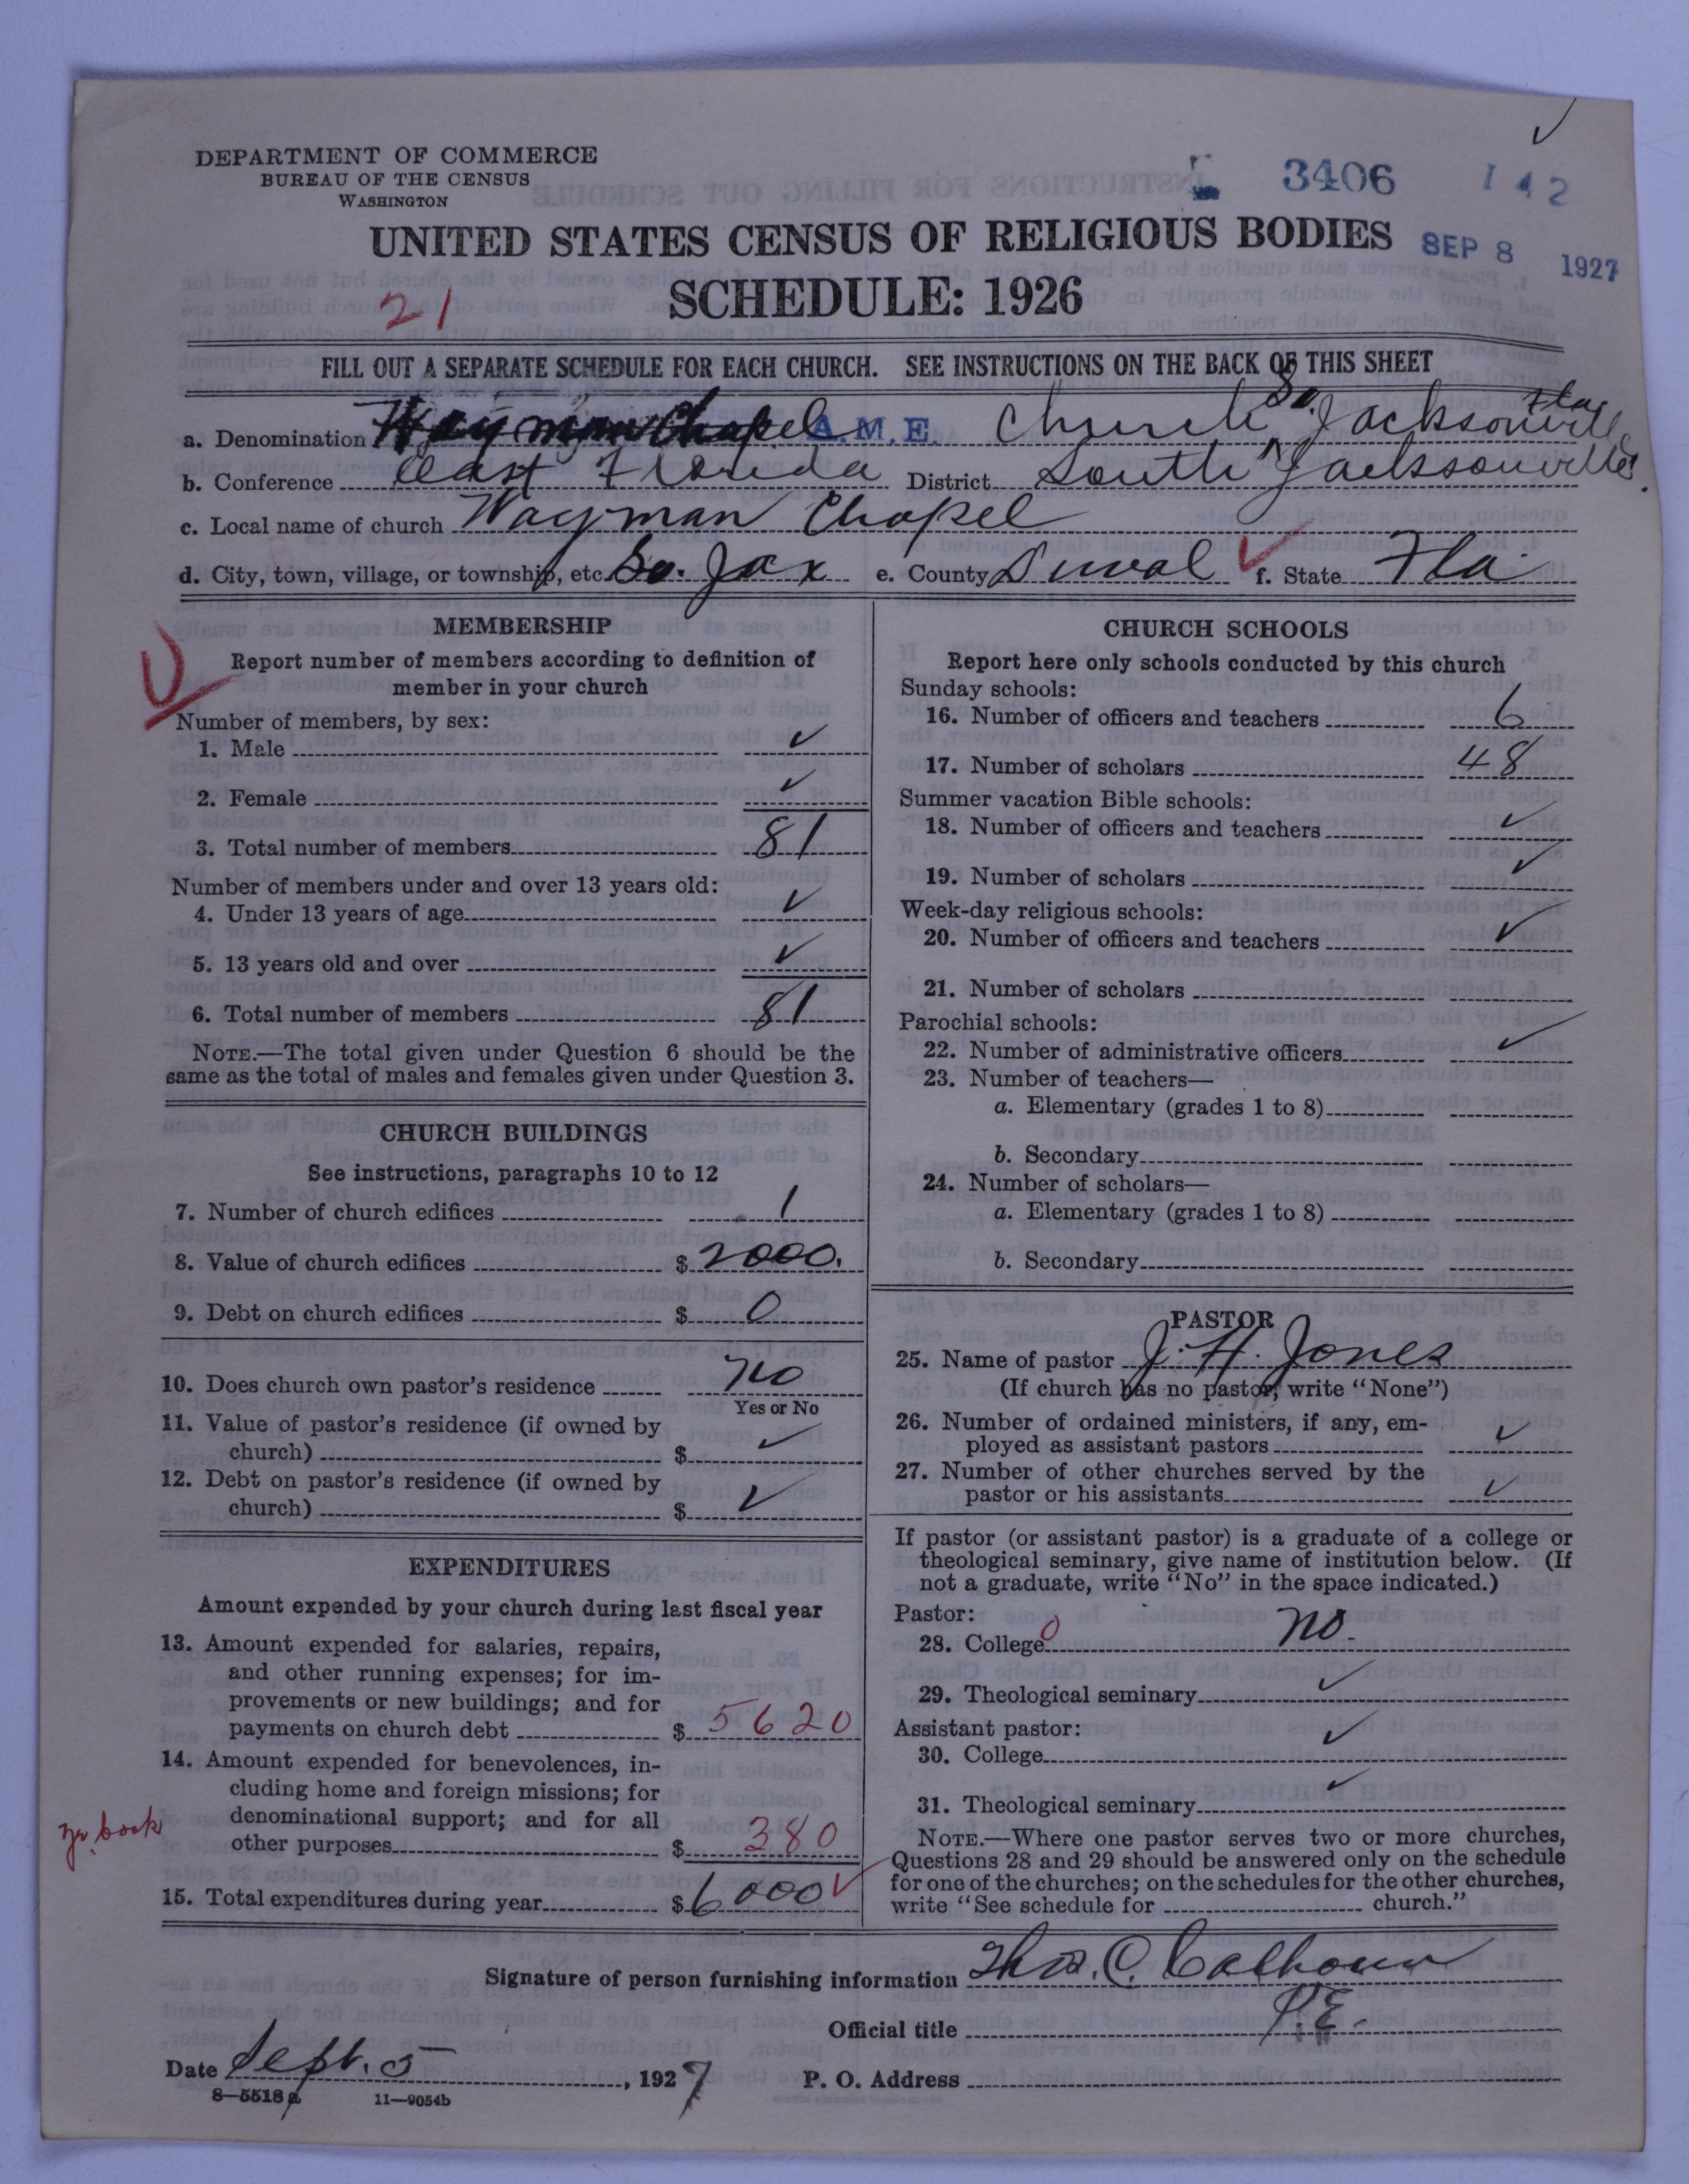 DEPARTMENT OF COMMERCE
BUREAU OF THE CENSUS
WASHINGTON
3406 142
UNITED STATES CENSUS OF RELIGIOUS BODIES
SEP 8 1927
SCHEDULE: 1926
21
FILL OUT A SEPARATE SCHEDULE FOR EACH CHURCH. SEE INSTRUCTIONS ON THE BACK OF THIS SHEET
a. Denomination Wayman Chapel A.M.E. Church So. Jacksonville Fla
b. Conference East Florida District South Jacksonville.
c. Local name of church Wayman Chapel
d. City, town, village, or township, etc. So. Jax e. County Duval f. State Fla.
MEMBERSHIP
Report number of members according to definition of
member in your church
Number of members, by sex:
1. Male ✓
2. Female ✓
3. Total number of members 81
Number of members under and over 13 years old:
4. Under 13 years of age ✓
5. 13 years old and over ✓
6. Total number of members 81
NOTE.—The total given under Question 6 should be the
same as the total of males and females given under Question 3.
CHURCH BUILDINGS
See instructions, paragraphs 10 to 12
7. Number of church edifices 1
8. Value of church edifices $ 2000.
9. Debt on church edifices $ 0
10. Does church own pastor's residence No
Yes or No
11. Value of pastor's residence (if owned by
church) $ ✓
12. Debt on pastor's residence (if owned by
church) $ ✓
EXPENDITURES
Amount expended by your church during last fiscal year
13. Amount expended for salaries, repairs,
and other running expenses; for im-
provements or new buildings; and for
payments on church debt $ 5620
14. Amount expended for benevolences, in-
cluding home and foreign missions; for
denominational support; and for all
other purposes $ 380
yr. book
15. Total expenditures during year $ 6000 ✓
CHURCH SCHOOLS
Report here only schools conducted by this church
Sunday schools:
16. Number of officers and teachers 6
17. Number of scholars 48
Summer vacation Bible schools:
18. Number of officers and teachers ✓
19. Number of scholars ✓
Week-day religious schools:
20. Number of officers and teachers ✓
21. Number of scholars
Parochial schools:
22. Number of administrative officers ✓
23. Number of teachers—
a. Elementary (grades 1 to 8)
b. Secondary
24. Number of scholars—
a. Elementary (grades 1 to 8)
b. Secondary
PASTOR
25. Name of pastor J. H. Jones
(If church has no pastor, write "None")
26. Number of ordained ministers, if any, em-
ployed as assistant pastors ✓
27. Number of other churches served by the
pastor or his assistants ✓
If pastor (or assistant pastor) is a graduate of a college or
theological seminary, give name of institution below. (If
not a graduate, write "No" in the space indicated.)
Pastor:
28. College 0 No.
29. Theological seminary ✓
Assistant pastor:
30. College ✓
31. Theological seminary ✓
NOTE.—Where one pastor serves two or more churches,
Questions 28 and 29 should be answered only on the schedule
for one of the churches; on the schedules for the other churches,
write "See schedule for church."
Signature of person furnishing information Thos. C. Calhoun
Official title P.E.
Date Sept. 5, 1927 P. O. Address
8—5518a 11—9054b